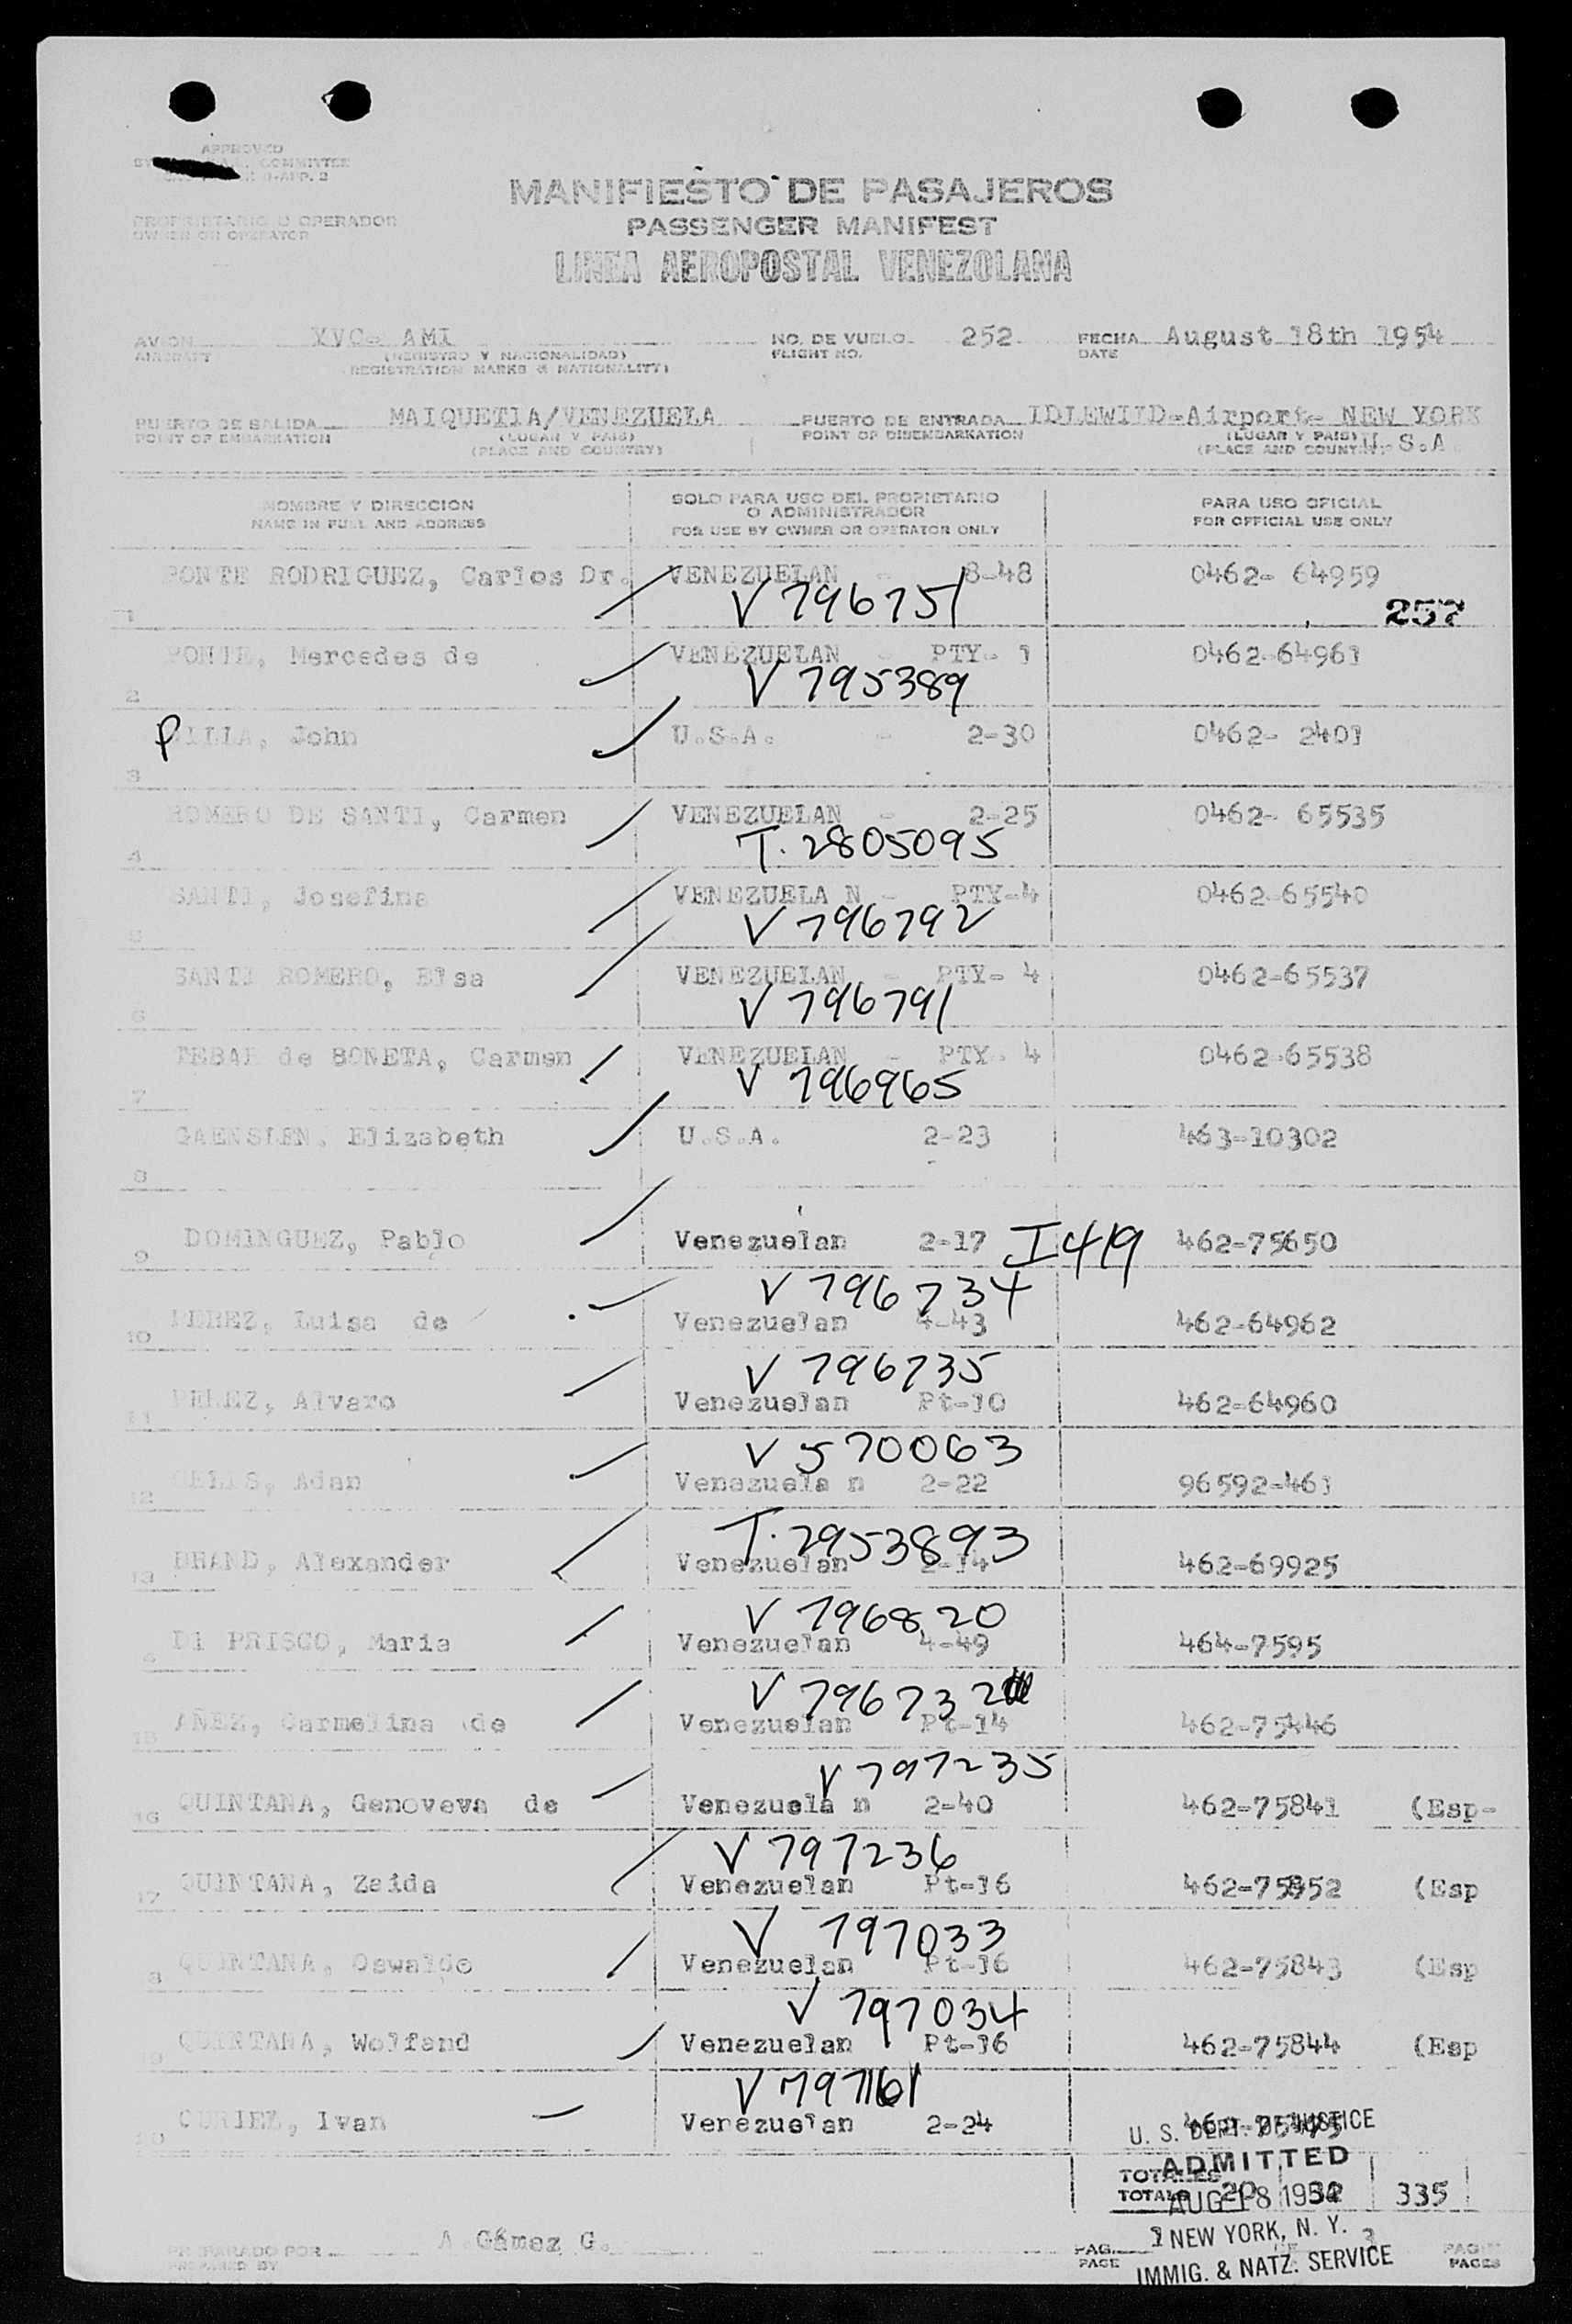 APPROVED
COMMITTEE
PROPRIETARIO O OPERADOR
OWNER OR OPERATOR
MANIFIESTO DE PASAJEROS
PASSENGER MANIFEST
LINEA AEROPOSTAL VENEZOLANA
AVION YVC- AMI NO. DE VUELO 252 FECHA August 18th 1954
AIRCRAFT (REGISTRO Y NACIONALIDAD) FLIGHT NO. DATE
REGISTRATION MARKS & NATIONALITY)
PUERTO DE SALIDA MAIQUETIA/VENEZUELA PUERTO DE ENTRADA IDLEWIID-Airport- NEW YORK
POINT OF EMBARKATION (LUGAR Y PAIS) POINT OF DISEMBARKATION (LUGAR Y PAIS) U.S.A.
(PLACE AND COUNTRY) (PLACE AND COUNTRY)
NOMBRE Y DIRECCION SOLO PARA USO DEL PROPIETARIO PARA USO OFICIAL
O ADMINISTRADOR
NAME IN FULL AND ADDRESS FOR USE BY OWNER OR OPERATOR ONLY FOR OFFICIAL USE ONLY
PONTE RODRIGUEZ, Carlos Dr. VENEZUELAN - 8-48 0462- 64959
1 V 796751 257
PONTE, Mercedes de VENEZUELAN - PTY- 1 0462-64961
2 V 795389
PILLA, John U.S.A. - 2-30 0462- 2401
3
ROMERO DE SANTI, Carmen VENEZUELAN - 2-25 0462- 65535
4 T. 2805095
SANTI, Josefina VENEZUELA N - PTY-4 0462-65540
5 V 796792
SANTI ROMERO, Elsa VENEZUELAN - PTY- 4 0462-65537
6 V 796791
TEBAR de BONETA, Carmen VENEZUELAN - PTY- 4 0462-65538
7 V 796965
GAENSLEN, Elizabeth U.S.A. 2-23 463-10302
8
DOMINGUEZ, Pablo Venezuelan 2-17 I 419 462-75650
9
V 796734
10 PEREZ, Luisa de Venezuelan 4-43 462-64962
V 796735
11 PEREZ, Alvaro Venezuelan Pt-10 462-64960
V 570063
12 CELIS, Adan Venezuela n 2-22 96592-461
T. 2953893
13 BRAND, Alexander Venezuelan 2-14 462-69925
V 796820
DI PRISCO, Maria Venezuelan 4-49 464-7595
V 796732
15 AÑEZ, Carmelina de Venezuelan Pt-14 462-75446
V 797235
16 QUINTANA, Genoveva de Venezuela n 2-40 462-75841 (Esp-
V 797236
17 QUINTANA, Zaida Venezuelan Pt-16 462-75852 (Esp
V 797033
8 QUINTANA, Oswaldo Venezuelan Pt-16 462-75843 (Esp
V 797034
QUINTANA, Wolfand Venezuelan Pt-16 462-75844 (Esp
V 797161
CURIEL, Ivan Venezuelan 2-24
U. S. DEPT. OF JUSTICE
ADMITTED
TOTALES
TOTALS 20 335
AUG 18 1954
A. Gámez G.
PREPARADO POR
PREPARED BY
PAG. 1 NEW YORK, N. Y. 3 PAG
PAGE IMMIG. & NATZ. SERVICE PAGES